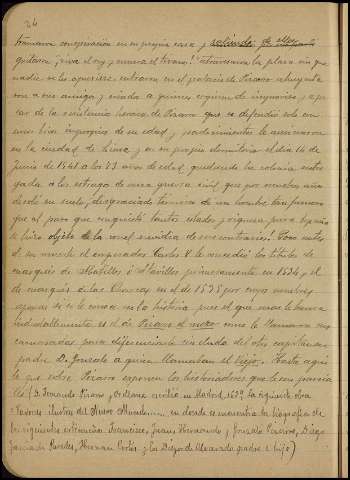 24
tramaron conspiración en su propia casa y saliendo de ella
gritaron ¡viva el rey y muera el tirano! atravesaron la plaza sin que
nadie se los opusiera, entraron en el palacio de Pizarro
a sus amigos, y
sar de la resistencia heroica de Pizarro que se defendió solo con
una brio impropios de su edad, y padecimientos le asesinaron
en la ciudad de Lima, y en su propio domicilio el dia 26 de
Junio de 1541 a los 73 años de edad, quedando la colonia entre
gada a los estragos de una guerra civil, que por muchos años
desoló su suelo, desgraciado termino de un hombre tan famoso
que al paso que conquistó tantos estados y riquezas para España
se hizo objeto de la cruel envidia de sus contrarios! Poco antes
de su muerte el emperador Carlos V le concedió los titulos de
marqués de Atabillos o Atavillos primeramente en 1534, y el
de marqués de las Charcas en el de 1535 por cuyos nombres
apenas si se le conoce en la historia, pues el que mas le busca
indudablemente es el de Pizarro el mozo como le llamaron sus
camaradas para diferenciarle sin duda del otro capitan su
padre D. Gonzalo a quien llamaban el viejo. Hasta aqui
lo que sobre Pizarro exponen los historiadores
(D. Fernando Pizarro y Orellana escribió en Madrid 1639 la siguiente obra
"Varones ilustres del Nuevo Mundo", en donde se encuentra la biografia de
los siguientes extremeños: Francisco, Juan, Hernando y Gonzalo Pizarro, Diego
Garcia de Paredes, Hernan Cortés y los Diegos de Alvarado padre e hijo)